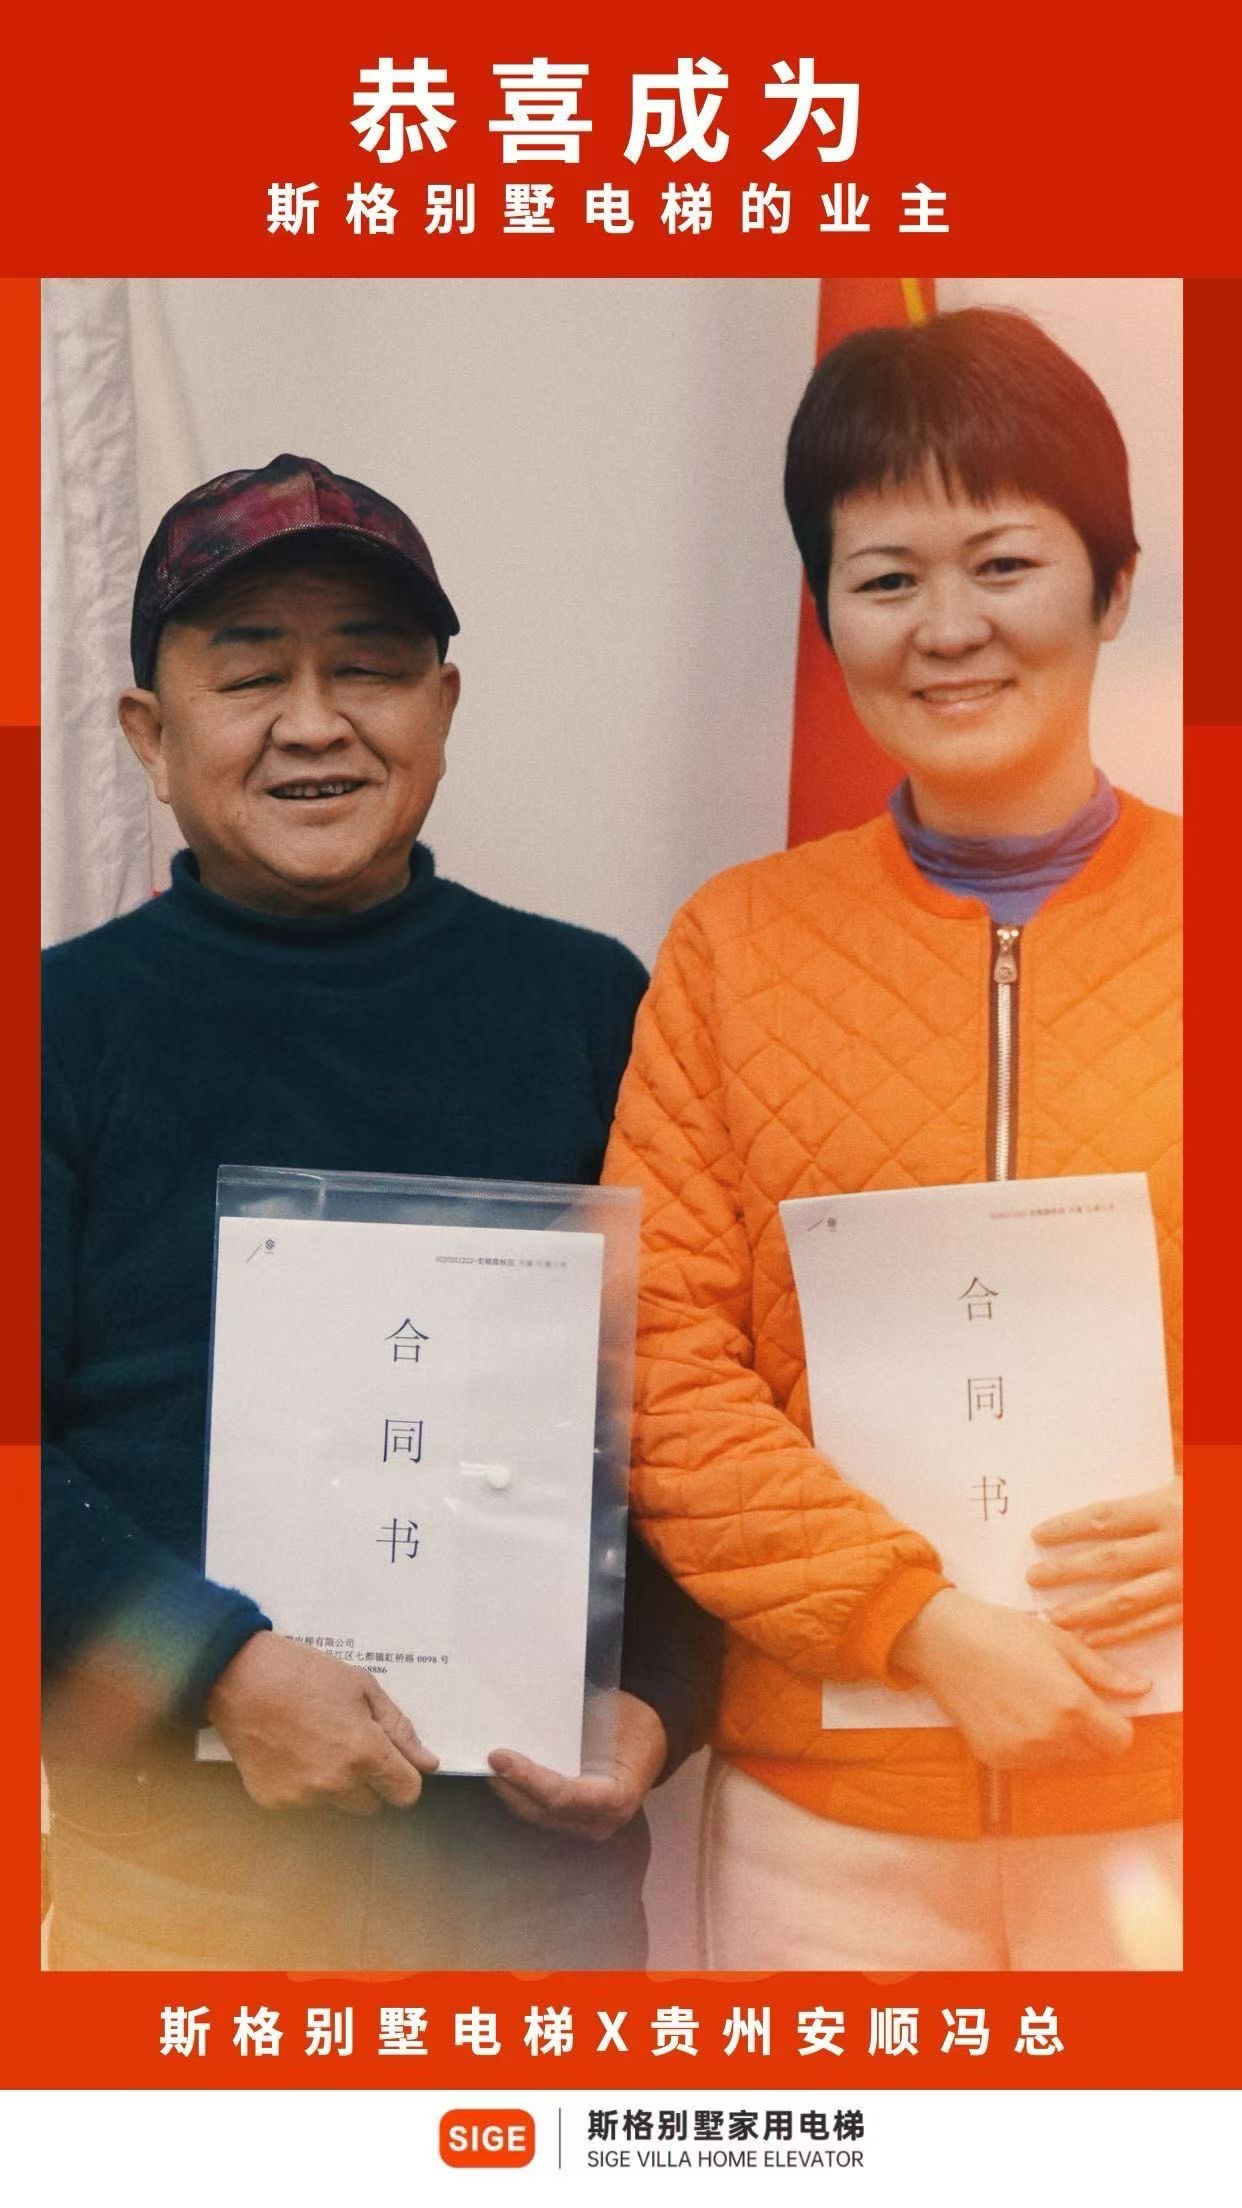 恭喜成为
斯格别墅电梯的业主
合
同
书
电梯有限公司
江区七都镇虹桥路 0098 号
68886
合
同
书
斯格别墅电梯X贵州安顺冯总
SIGE
斯格别墅家用电梯
SIGE VILLA HOME ELEVATOR